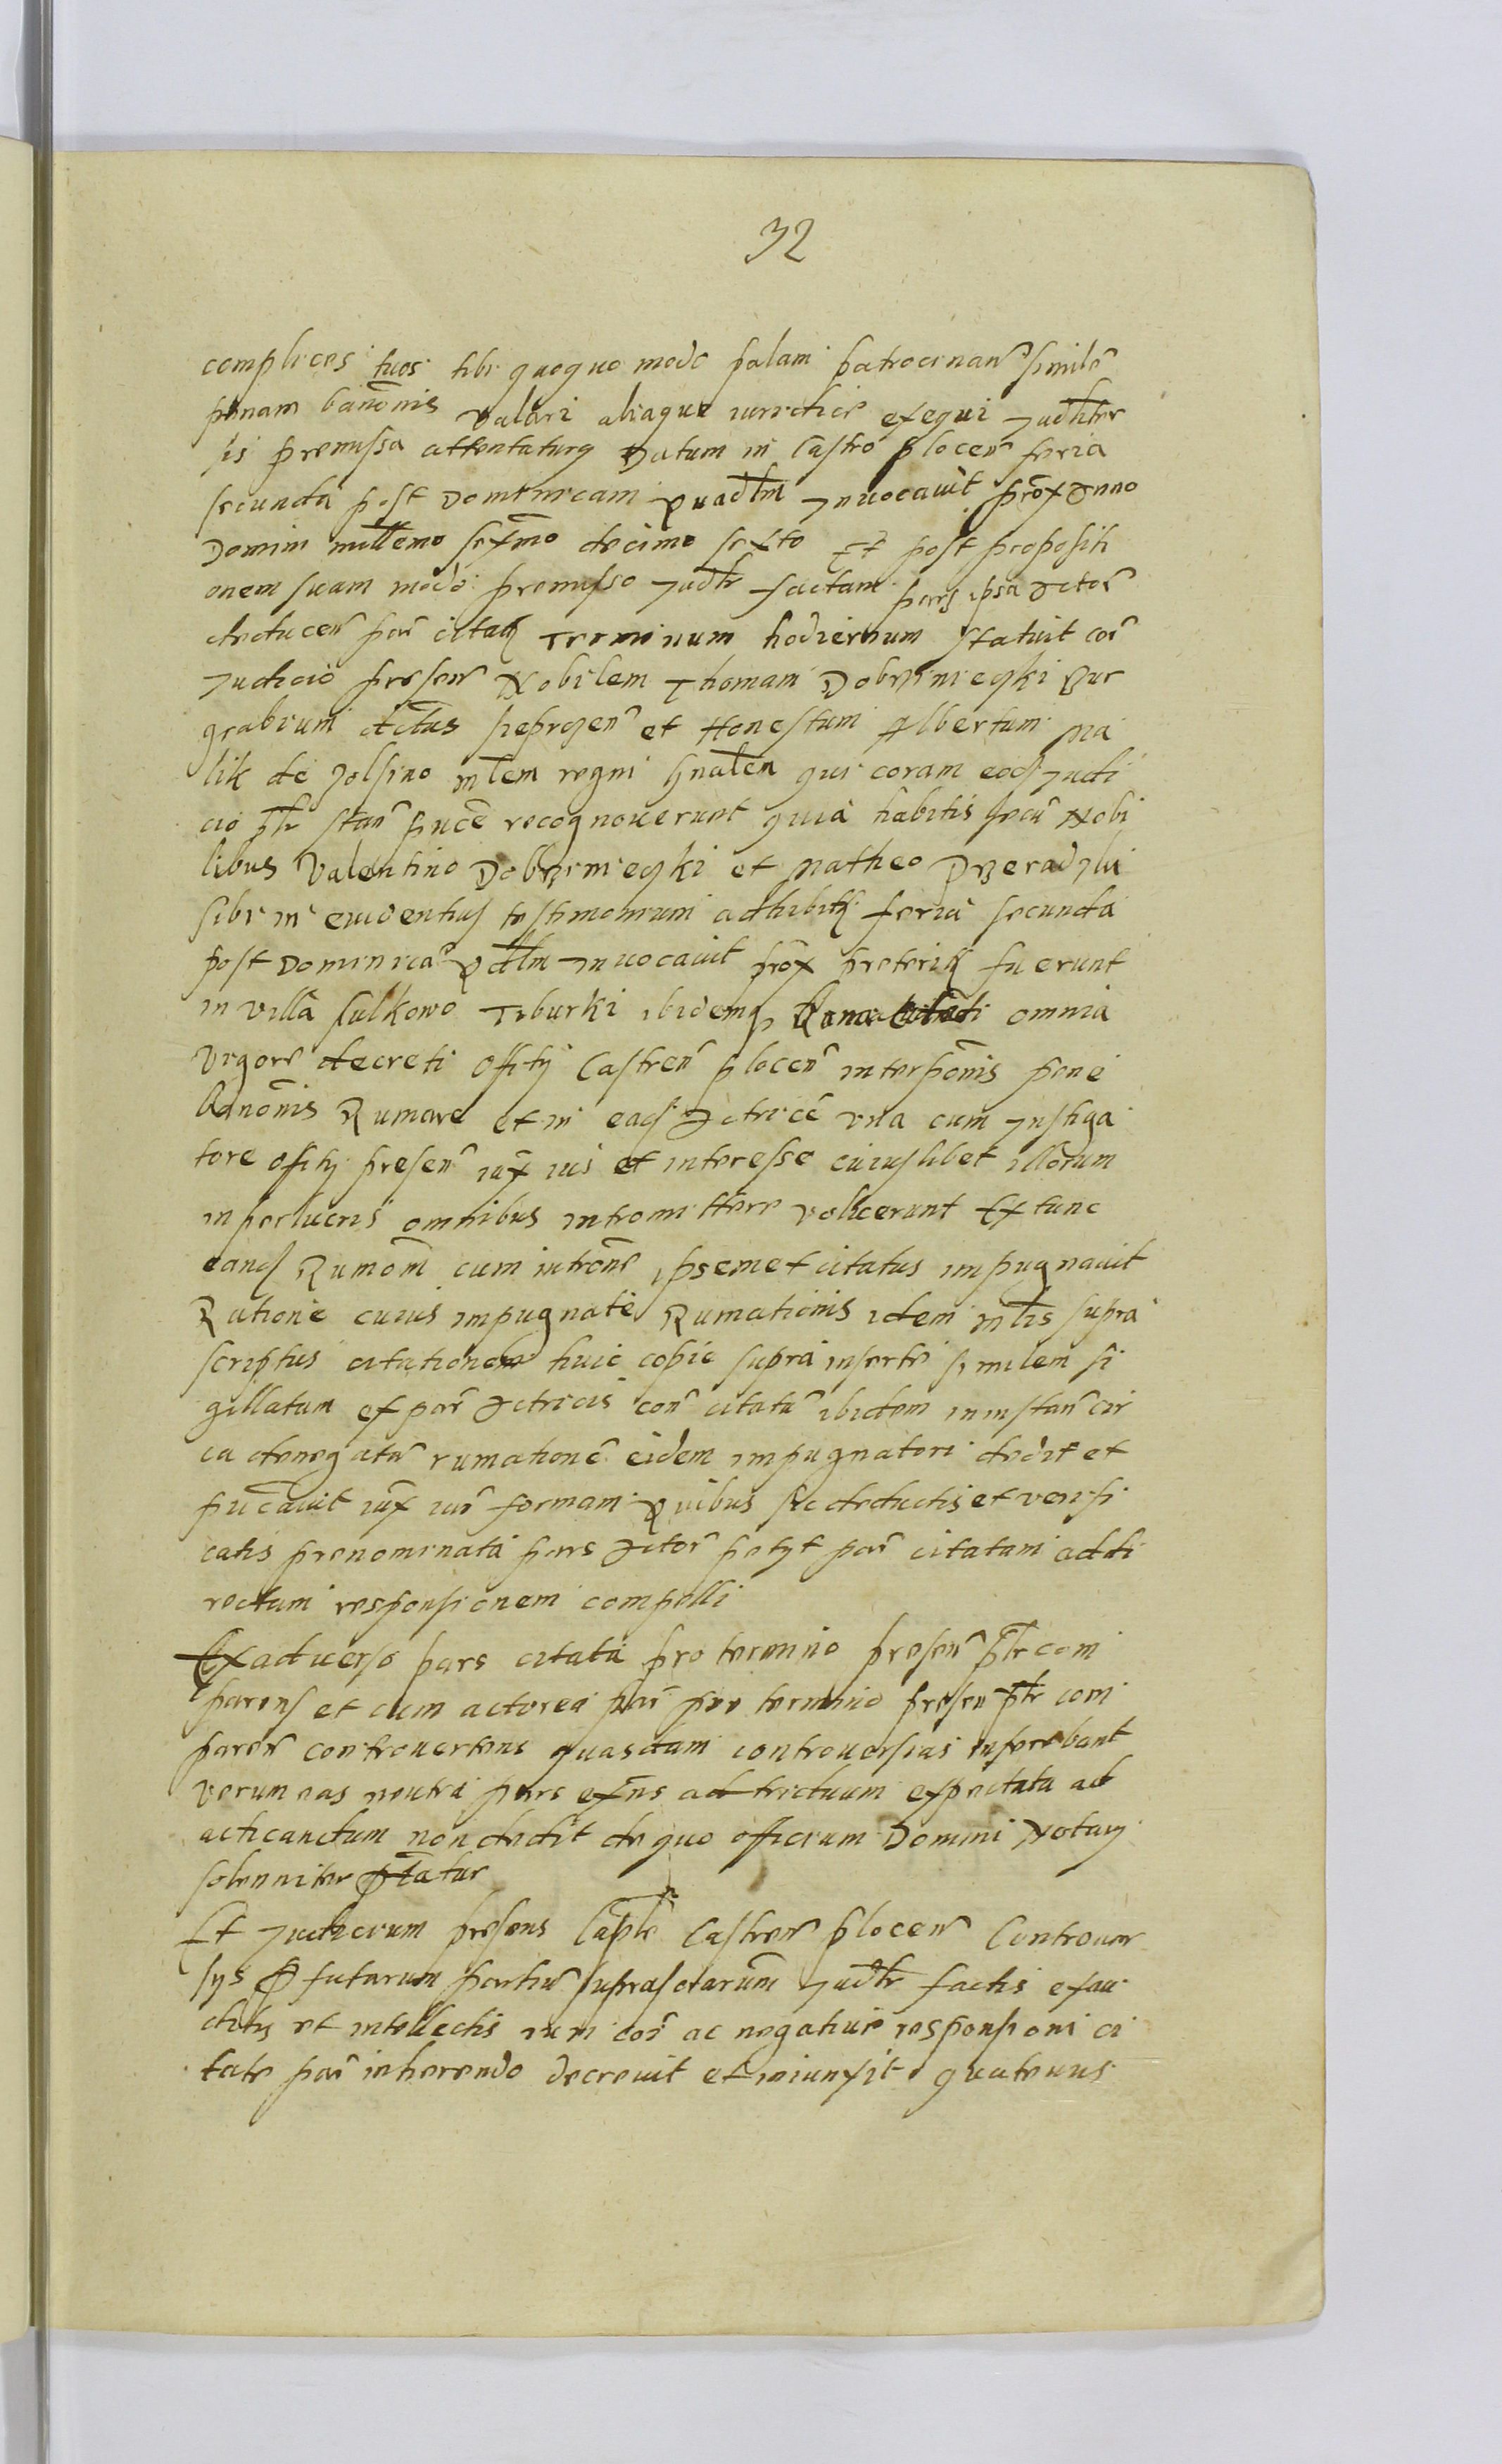 32
complices tuos tibi quoquo modo palam patrocinan simile
penam banonis valari aliaque iuridice exequi Judliter
sis premissa attentaturq Datum in Castro plocen feria
secunda post Dominicam Quadlm Inuocauit prox Anno
Domini millemo sexmo decimo sexto Et post propositi
onem suam modo premisso Judlr factam pars ipsa Actor
deducen par citatq Terminum hodiernum statuit cor
Judicio presen Nobilem Thomam Dobrzinieczki Bur
grabium et Honestum Albertum Ma
lik de Jolsino mlem regni gnalen qui coram eod Judi
cio plr stan recognouerunt quia habitis secu Nobi
libus Valentino Dobrzinieczki et Matheo
sibi in euidentius testimonium adhibitis feria secunda
post Dominica Qdlm Inuocauit prox preteriq fuerunt
in villa Sulkowo Tiburki ibidemq bona citati omnia
vigore decreti offity Castren plocen interponis pene
banonis Rumare et in ead Actrice vna cum Instiga
tore offity presen iux ius et interesse cuiuslibet illorum
in perlucris omnibus intromittere voluerunt Extunc
eand Rumom cum introne ipsemet citatus impugnauit
Ratione cuius impugnate Rumationis idem mlis supra
scriptus citationem huic copie supra inserte similem si
gillatam ex par Actricis con citatu ibidem in instan cir
ca denegata rumatione eidem impugnatori dedit et
pucauit iux iur formam Quibus sic deductis et verifi
catis prenominata pars Actor petyt par citatam addi
rectam responsionem compelli
Ex aduerso pars citata pro termino presen plr com
parens et cum actorea par pro termino presen plr com
paren controuertens quasdam controuersias inferebant
verum eas neutra pars exns ad triduum expectata ad
acticandum non dedit de quo officium Domini Notary
solenniter ptatur
Et Judicium presens Caple Castren plocen Controuer
sys pfutarum partiu suprascrarum Judlr factis exau
ditis et intellectis iuri coi ac negatiue responsioni ci
tate par inherendo decreuit et iniunxit quatenus